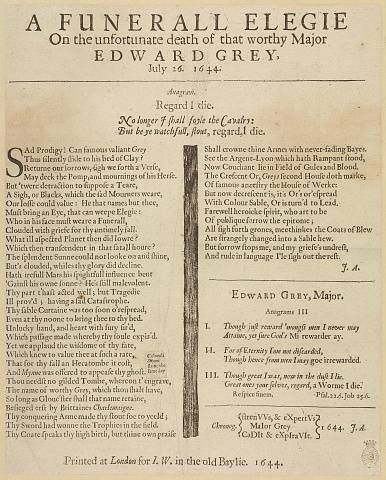 A FUNERALL ELEGIE
On the unfortunate death of that worthy Major
EDWARD GREY,
July 26. 1644.
Anagram.
Regard I die.
No longer I shall joyne the Cavalry:
But be ye watchfull, stout, regard, I die.
SAd Prodigy! Can famous valiant Grey
Thus silently stole to his bed of Clay?
Returne our sorrows, sigh we forth a Verse,
May deck the Pomp, and mournings of his Herse.
But 'twere detraction to suppose a Teare,
A Sigh, or Blacks, which the sad Mourners weare,
Our losse could value: He that names but thee,
Must bring an Eye, that can weepe Elegie:
Who in his face must weare a Funerall,
Clouded with griefe for thy untimely fall.
What ill aspected Planet then did lowre?
Which then transcendent in that fatall houre?
The splendent Sunne could not looke on and shine,
But's clouded, whiles thy glory did decline.
Hath refull Mars his spightfull influence bent
'Gainst his owne sonne? He's still malevolent.
Thy part th'hast acted well; but Tragedie
Ill prov'd; having a sad Catastrophe.
Thy sable Curtaine was too soon o'respread,
Even at thy noone to bring thee to thy bed.
Unlucky hand, and heart with fury fir'd,
Which passage made whereby thy soule expir'd.
Yet we applaud the wisdome of thy fate,
Which knew to value thee at such a rate,
That for thy fall an Hecatombe it cost,
And Myme was offered to appease thy Ghost.
Thou needst no gilded Tombe, whereon t'ingrave,
The name of worthy Grey, which thou shalt have,
So long as Gloucester shall that name retaine,
Besieged erst by Brittaines Charlemaigne.
Thy conquering Anne made thy stout foe to yeeld;
Thy Sword had wonne the Trophies in the field.
Thy Coate speaks thy high birth, but thine own praise
Shall crowne thine Armes with never-fading Bayes.
See the Argent-Lyon which hath Rampant stood,
Now Couchant lie in Field of Goles and Blood.
The Cresent Or, Greys second House doth marke,
Of famous ancestry the House of Werke:
But now decrescent is, it's Or's o'respread
With Colour Sable, Or is turn'd to Lead.
Farewell heroicke spirit, who art to be
Of publique sorrow the epitome;
All sigh forth grones, mee thinkes the Coats of Blew
Are strangely changed into a Sable hew.
But sorrow stops me, and my griefe's undrest,
And rude in language I'le sigh out the rest.
J. A.
EDWARD GREY, Major.
Anagrams III
I. Though just reward 'mongst men I never may
Attaine, yet sure God's Mi rewarder ay.
II. For of Eternity I am not discarded,
Though hence from men I way goe irrewarded.
III. Though great I was, now in the dust I lie.
Great ones your selves, regard, a Worme I die.
Respice finem. Psal.22.6. Job 25.6.
Chronog. Major Grey 1644. J. A.
Printed at London for I. W. in the old Baylie. 1644.